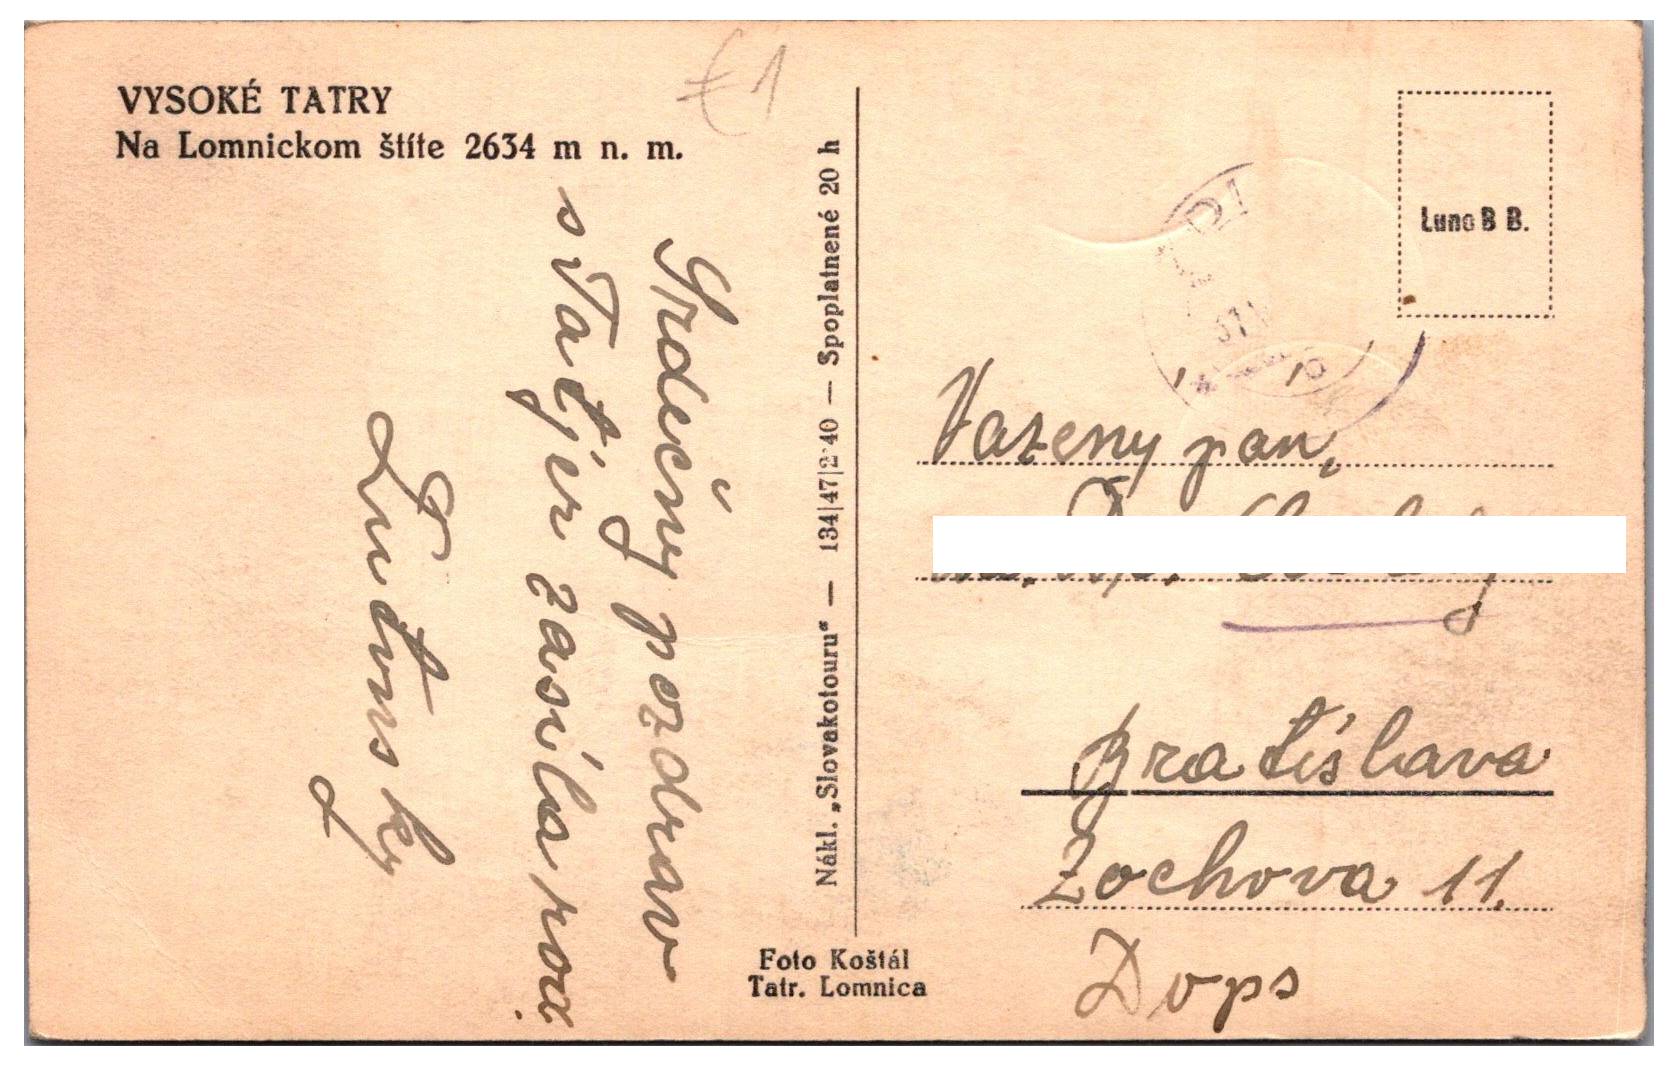 VYSOKÉ TATRY
Na Lomnickom štíte 2634 m n. m.
€1
Srdečny pozdrav
s Tatjer zasíla
Nákl. „Slovakotouru“ — 134|47|2·40 — Spoplatnené 20 h
Foto Koštál
Tatr. Lomnica
Luno B B.
31
Vazeny pán,
Bratislava
Zochova 11.
Dvps